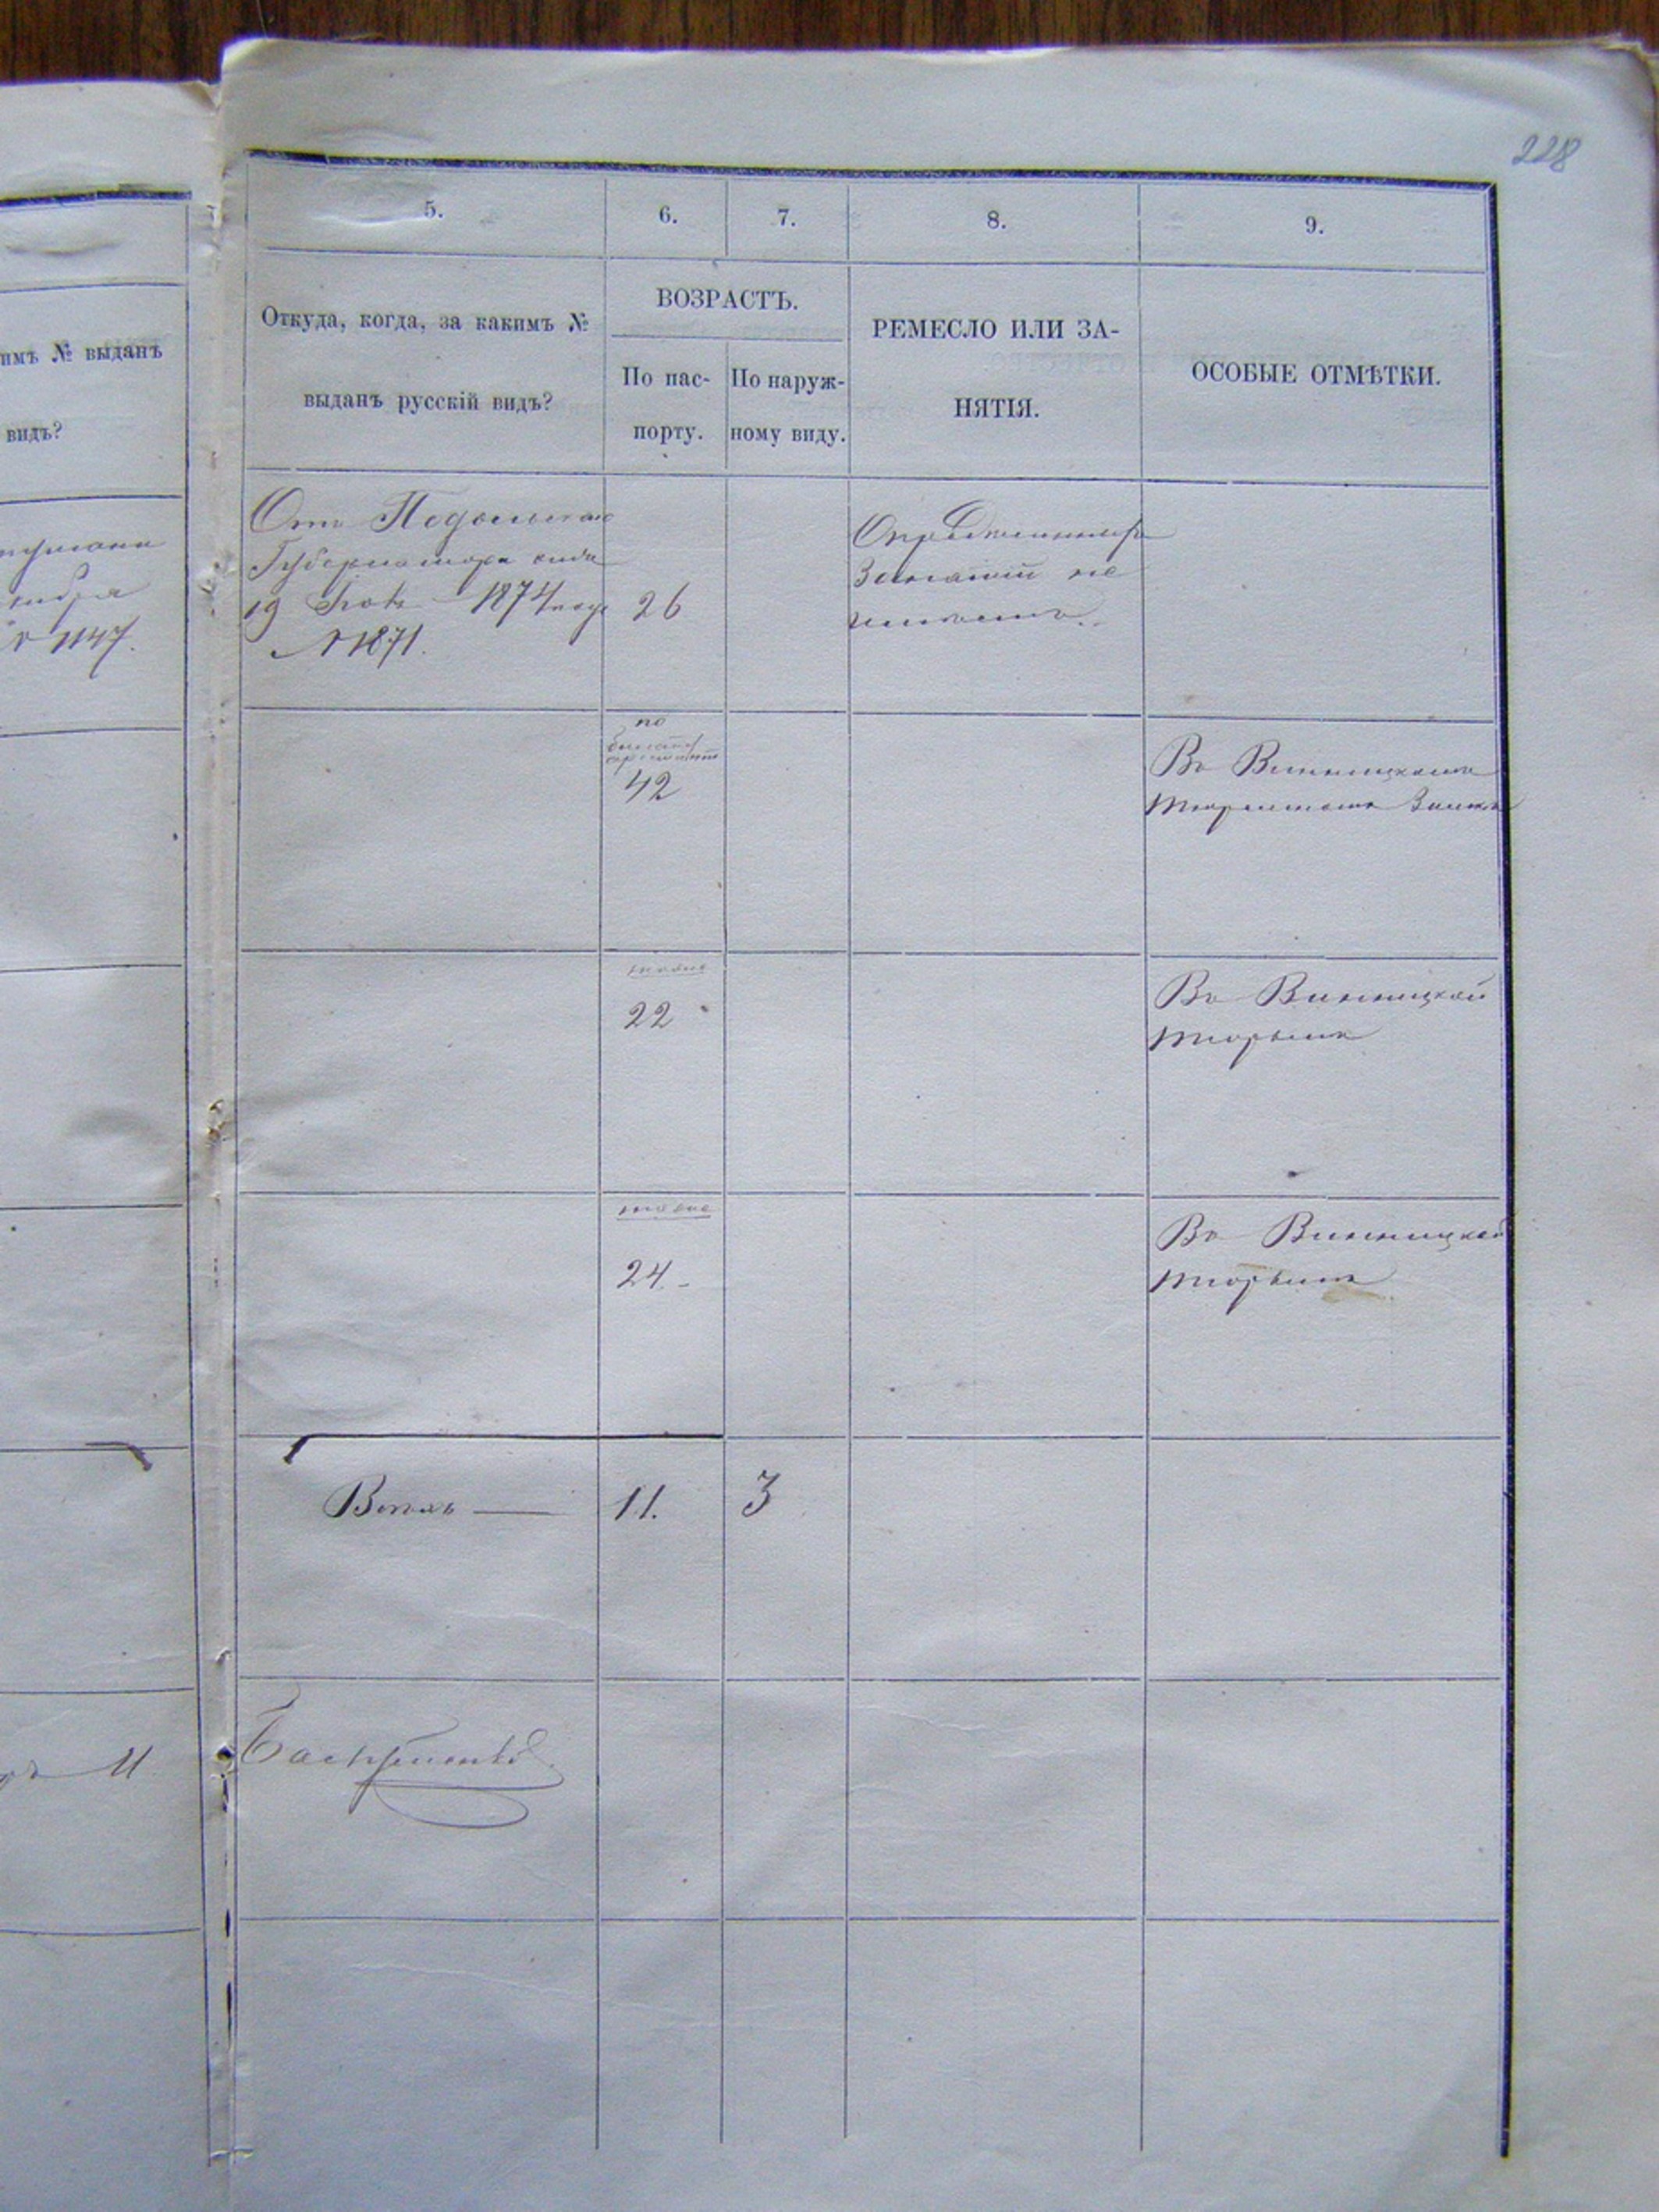 228
имъ № выданъ
видъ?
№ 1147.
11
5.
6.
7.
8.
9.
Откуда, когда, за какимъ №
выданъ русскій видъ?
ВОЗРАСТЪ.
По пас-
порту.
По наруж-
ному виду.
РЕМЕСЛО ИЛИ ЗА-
НЯТІЯ.
ОСОБЫЕ ОТМѢТКИ.
Отъ Подольскаго
Губернатора
19 1874 года
№ 1871.
26
занятій не
имѣетъ.
по
42
Въ
22
Въ Винницкой
тюрьмѣ
24
Въ Винницкой
тюрьмѣ
11.
3